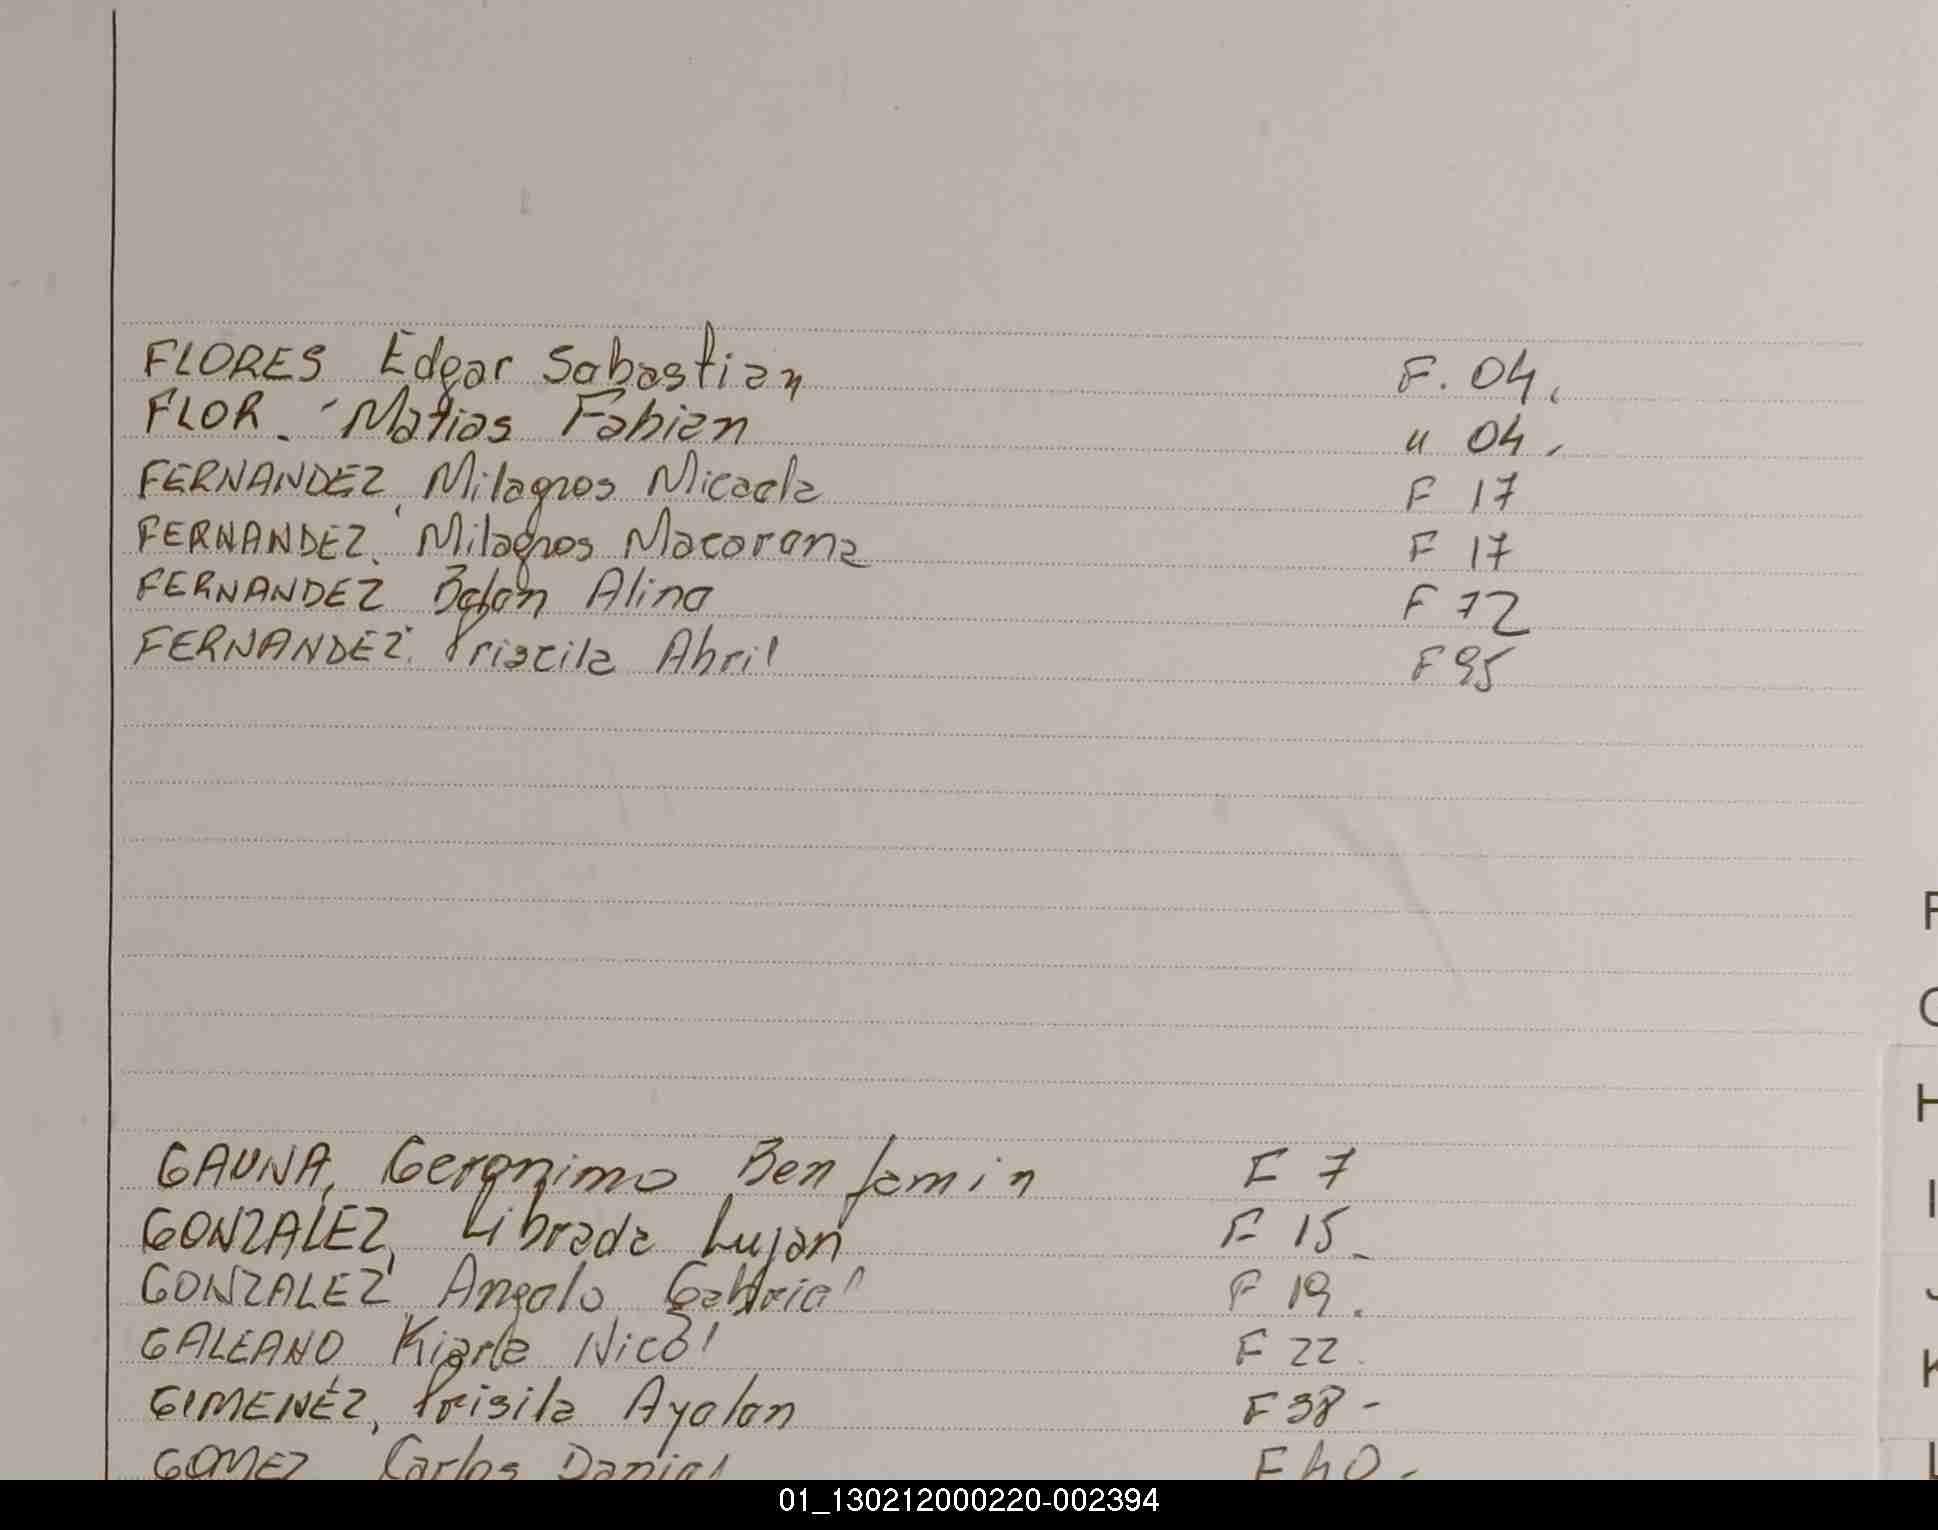 FLORES Edgar Sabastian F. 04.
FLOR. - Matias Fabian " 04.
FERNANDEZ, Milagros Micaela F 17
FERNANDEZ, Milagros Macarena F 17
FERNANDEZ Belen Alina F 72
FERNANDEZ. Priscila Abril F 95
GAUNA, Geronimo Benjamin F 7
GONZALEZ, Librada Lujan F 15_
GONZALEZ, Angelo Gabriel F 19.
GALEANO Kiarla Nicol F 22.
GIMENÉZ, Prisila Ayelen F 38 -
GOMEZ Carlos Daniel F 40 -
F
H
I
J
K
L
01_130212000220-002394